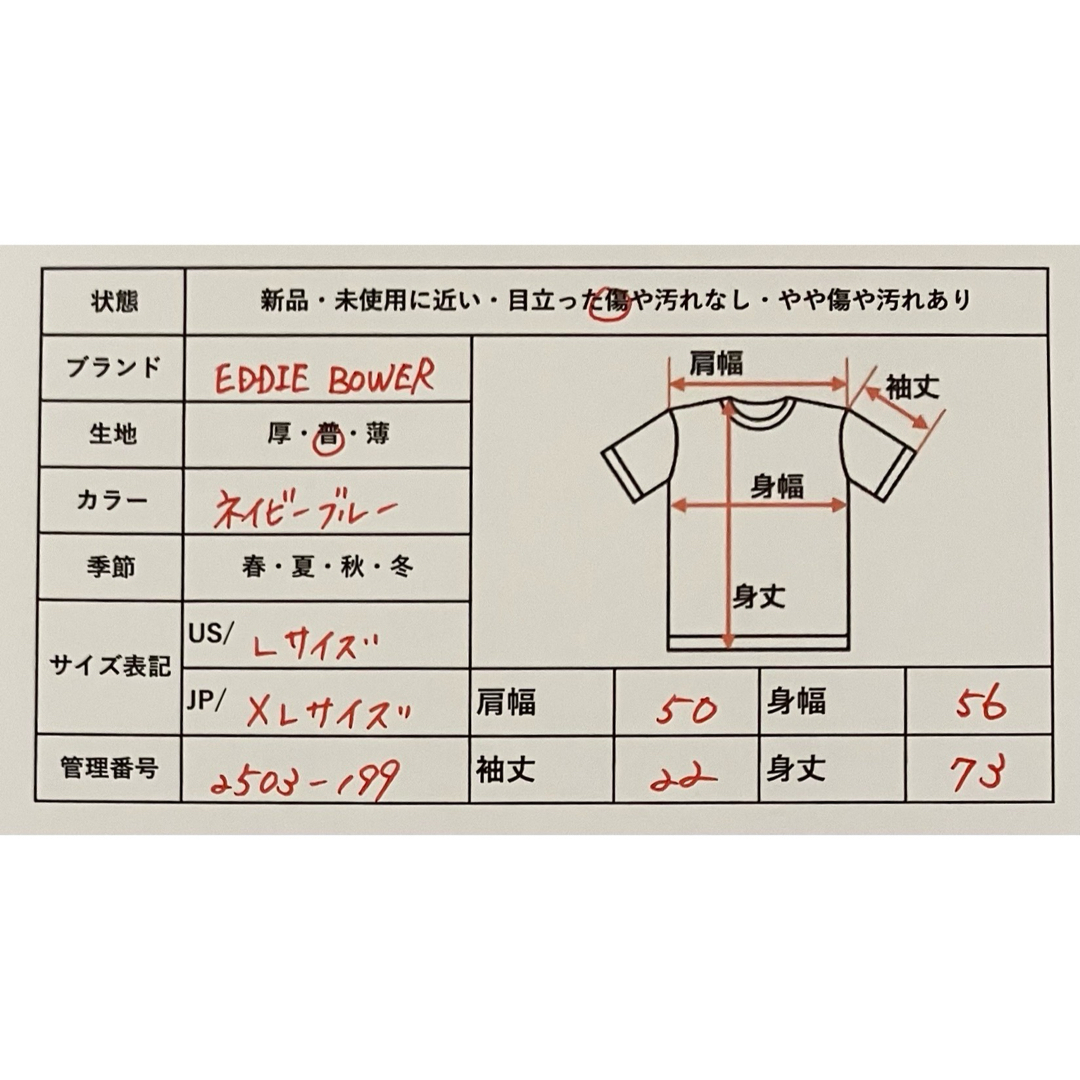 状態 新品・未使用に近い・目立った傷や汚れなし・やや傷や汚れあり
ブランド EDDIE BOWER
生地 厚・普・薄
カラー ネイビーブルー
季節 春・夏・秋・冬
サイズ表記
US/ Lサイズ
JP/ XLサイズ
管理番号 2503-199
肩幅
袖丈
身幅
身丈
肩幅 50 身幅 56
袖丈 22 身丈 73